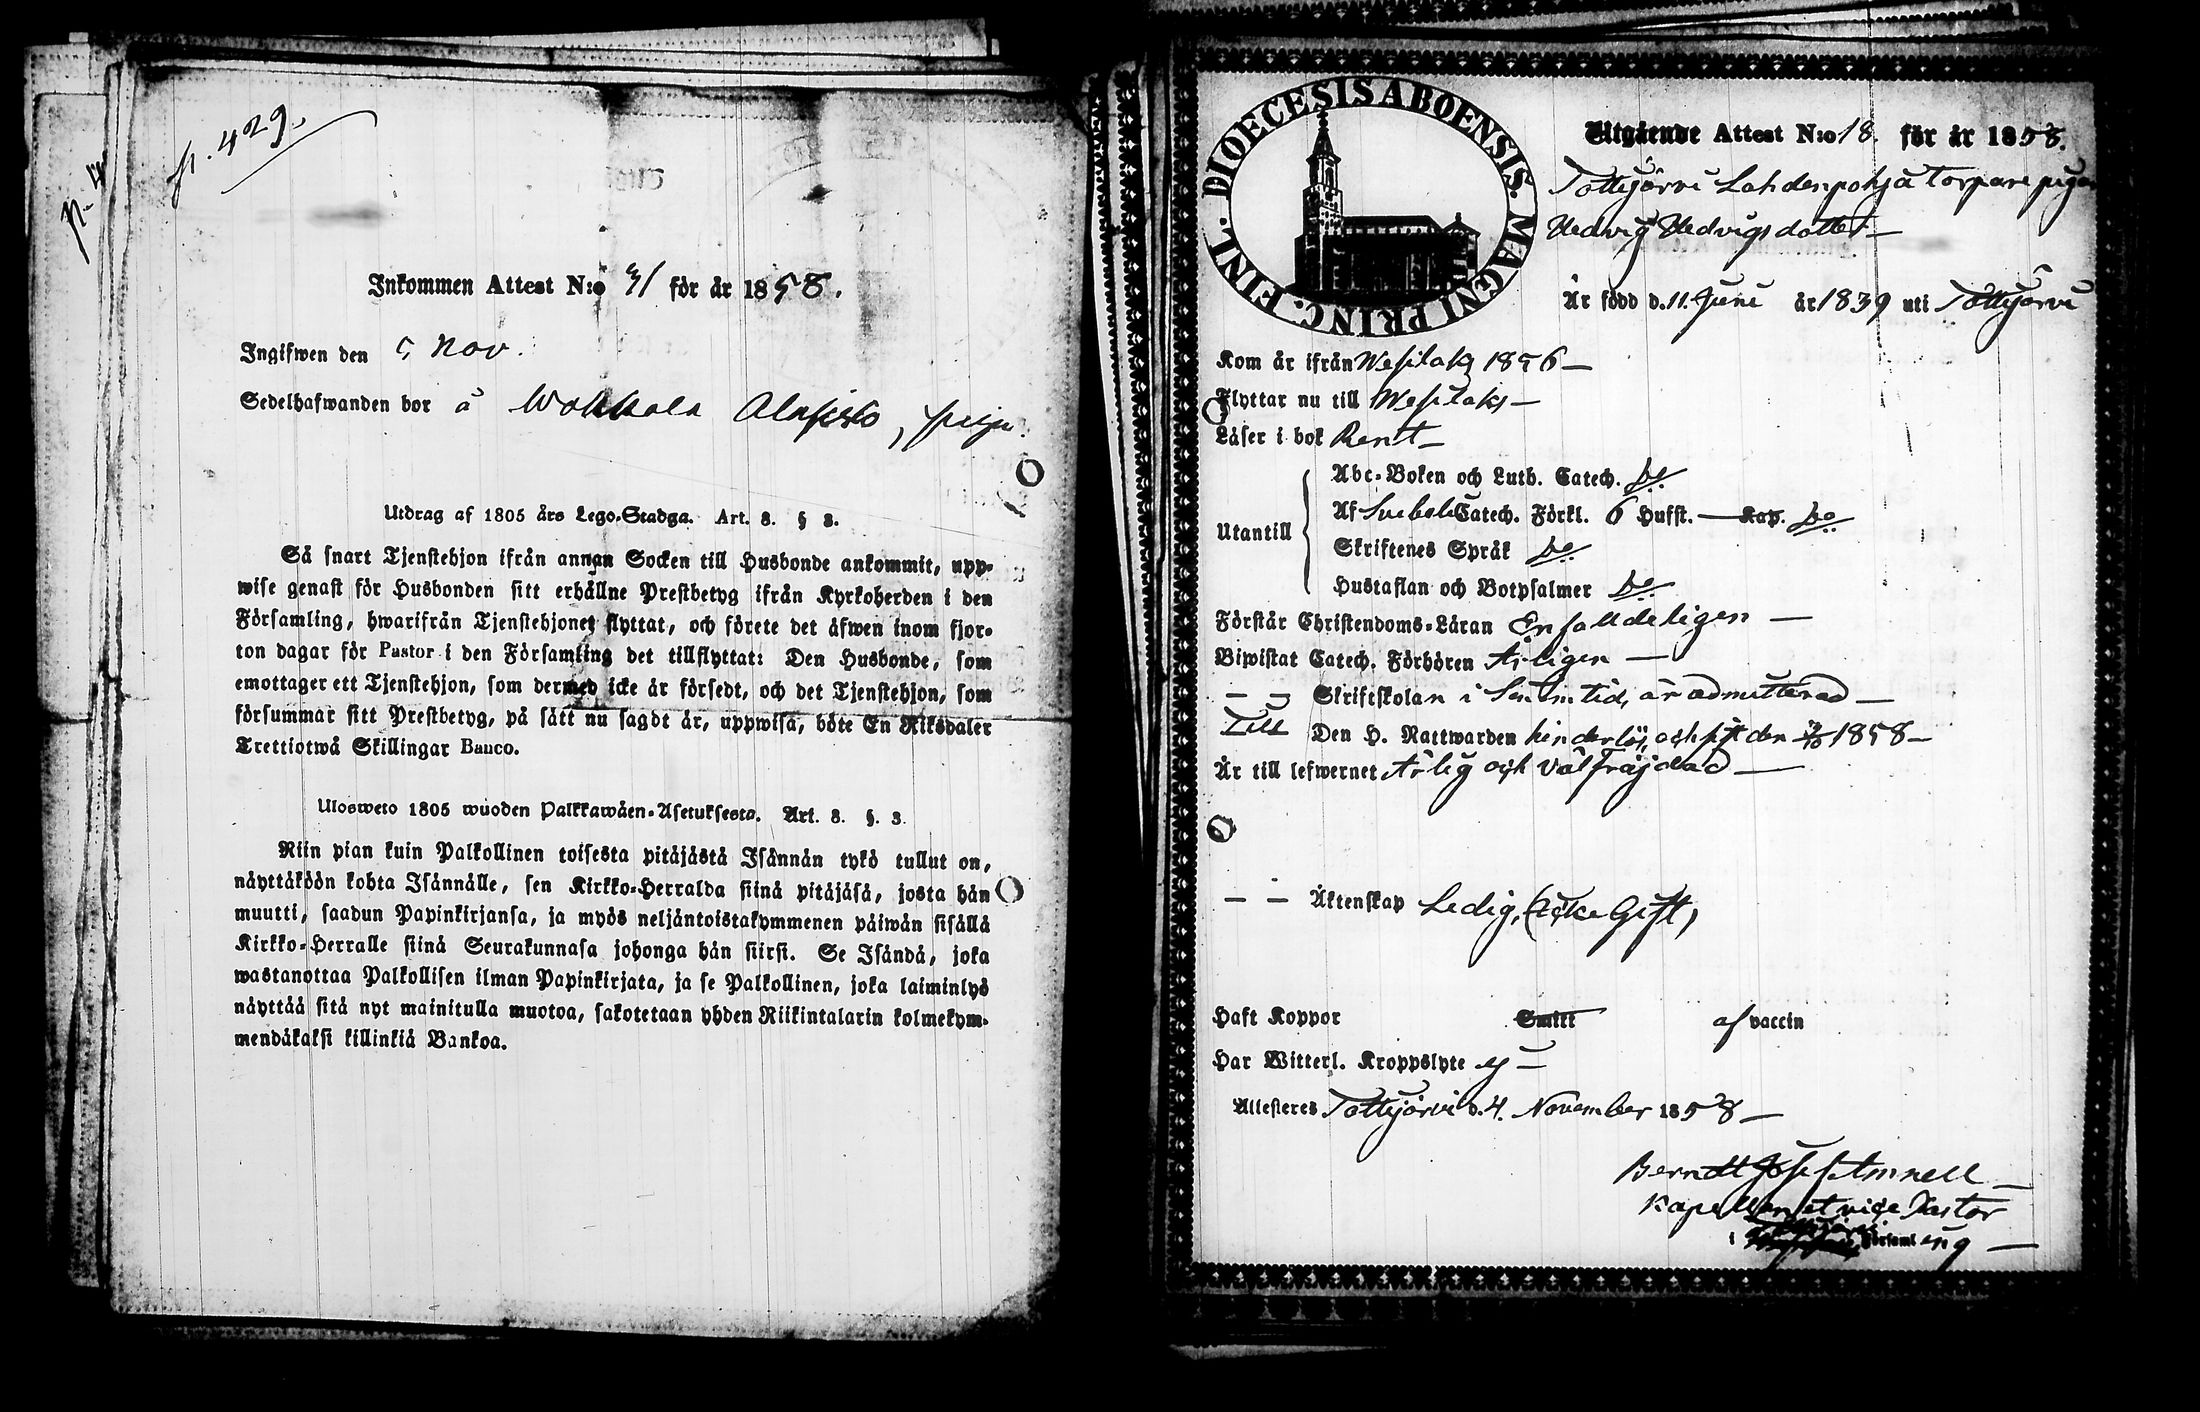 p. 429.
Inkommen Attest N:o 31 för år 1858.
Ingifwen den 5 Nov.
Sedelhafwanden bor å Wakkala Alapirto, piga.
Utdrag af 1805 års Lego-Stadga. Art. 8. § 3.
Så snart Tjenstehjon ifrån annan Socken till Husbonde ankommit, upp-
wise genast för Husbonden sitt erhållne Prestbetyg ifrån Kyrkoherden i den
Församling, hwarifrån Tjenstehjonet flyttat, och förete det äfwen inom fjor-
ton dagar för Pastor i den Församling det tillflyttat: Den Husbonde, som
emottager ett Tjenstehjon, som dermed icke är försedt, och det Tjenstehjon, som
försummar sitt Prestbetyg, på sätt nu sagdt är, uppwisa, böte En Riksdaler
Trettiotwå Skillingar Banco.
Ulosweto 1805 wuoden Palkkawäen-Asetuksesta. Art. 8. §. 3.
Niin pian kuin Palkollinen toisesta pitäjästä Isännän tykö tullut on,
näyttäköön kohta Isännälle, sen Kirkko-Herralda siinä pitäjäsä, josta hän
muutti, saadun Papinkirjansa, ja myös neljäntoistakymmenen päiwän sisällä
Kirkko-Herralle siinä Seurakunnasa johonga hän siirsi. Se Isändä, joka
wastanottaa Palkollisen ilman Papinkirjata, ja se Palkollinen, joka laiminlyö
näyttää sitä nyt mainitulla muotoa, sakotetaan yhden Riikintalarin kolmekym-
mendäkaksi killinkiä Bankoa.
DIOECESIS ABOENSIS. MAGNI PRINC. FINL.
Utgående Attest N:o 18. för år 1858.
Tottijärvi Lahdenpohja torpare pigan
Hedvig Hedvigsdotter
Är född d. 11. Juni år 1839 uti Tottijärvi
Kom år ifrån Wesilaks 1856
Flyttar nu till Wesilaks
Läser i bok Rent
Utantill
Abc-Boken och Luth. Catech. do
Af Svebeli Catech. Förkl. 6 Hufst. Kap. do
Skriftenes Språk do
Hustaflan och Botpsalmer do
Förstår Christendoms-Läran Enfalldeligen
Biwistat Catech. Förhören Årligen
Skriftskolan i sin tid, är admitterad
Till Den H. Nattwarden hinderlös, och sist den 1858
Är till lefwernet Ärlig och välfräjdad
Äktenskap Ledig, (icke Gift)
Haft Koppor Smitt af vaccin
Har Witterl. Kroppslyte ej
Attesteres Tottijärvi d. 4. November 1858
Berndt Josef Amnell
Kapellan et vice Pastor
i Tottijärvi Församl ing